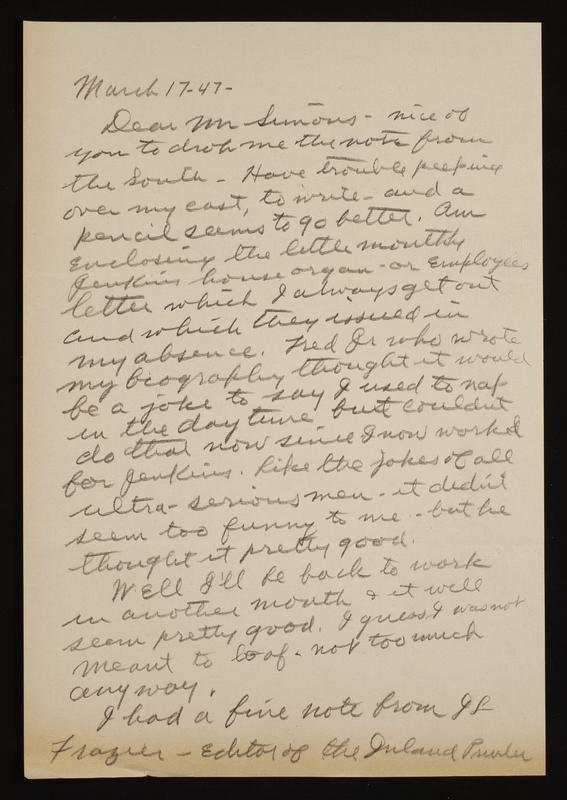 March 17-47-
Dear Mr Simons - nice of
you to drop me the note from
the South - Have trouble peeping
over my cast, to write - and a
pencil seems to go better. Am
enclosing the little monthly
Jenkins house organ - or Employees
letter which I always get out
and which they issued in
my absence. Fred Jr who wrote
my biography thought it would
be a joke to say I used to nap
in the day time but couldnt
do that now since I now worked
for Jenkins. Like the jokes of all
ultra-serious men - it didn't
seem too funny to me - but he
thought it pretty good.
Well I'll be back to work
in another month & it will
seem pretty good. I guess I was not
meant to loaf - not too much
anyway.
I had a fine note from JL
Frazier - Editor of the Inland Printer